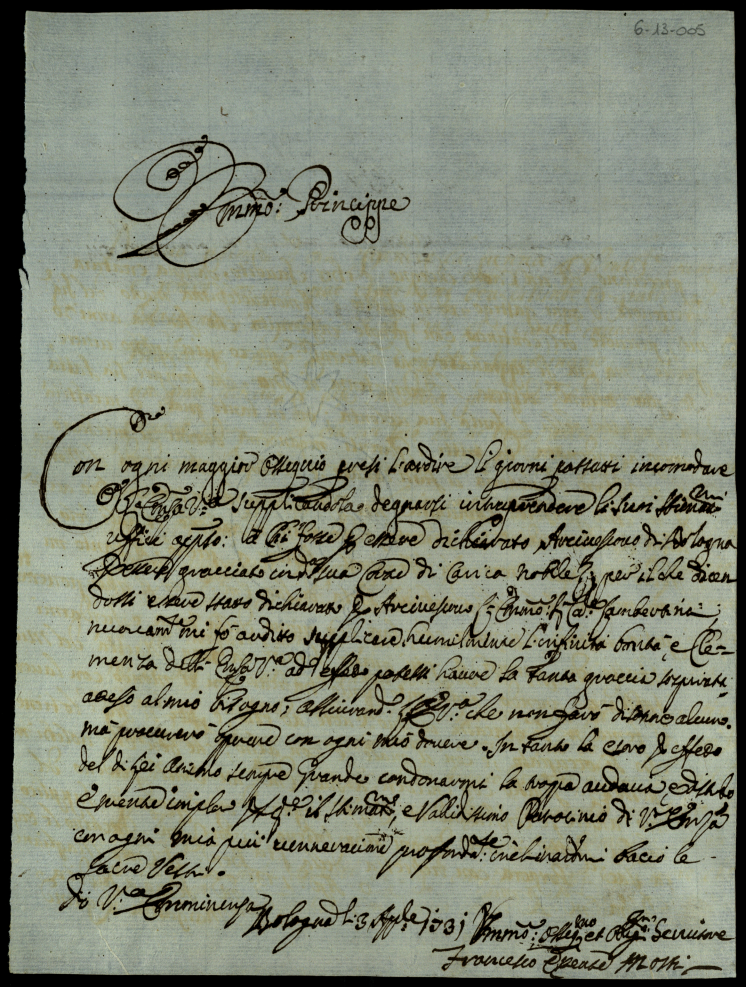 6-13-005
Emmo: Princippe
Con ogni maggior Ossequio presi l'ardire li giorni passati incomodare
l'Emza V:a supplicandola degnarsi intraprendere li suoi stimmi
uffici appto: à chi fosse per essere dichiarato Arcivescovo di Bologna
per essere gracciato in sua Corte di Carica nobile, per il che dicen
dosi essere stato dichiarato per Arcivescovo l'Emmo: Lambertini;
nuovamte mi fò ardito supplicare humilmente l'infinita bontà, e Cle-
menza dell' Emza V:a ad effetto potessi havere la tanta graccia sospirata
atteso al mio bisogno, assicurando V:a che non sarò di danno alcuno.
mà procurerò oprare con ogni mio dovere. In tanto la esoro per effetto
del di Lei Animo sempre grande condonarmi la troppa audacia, ed
il stimmo, e Validissimo Patrocinio di V:a Emza
con ogni mia più venneracione profondte inchinandomi bacio le
sacre Vesti.
Di V:a Emminenza
Bologna li 3 Apple 1731 Ummo: Ossegmo et Obligmo Servitore
Francesco